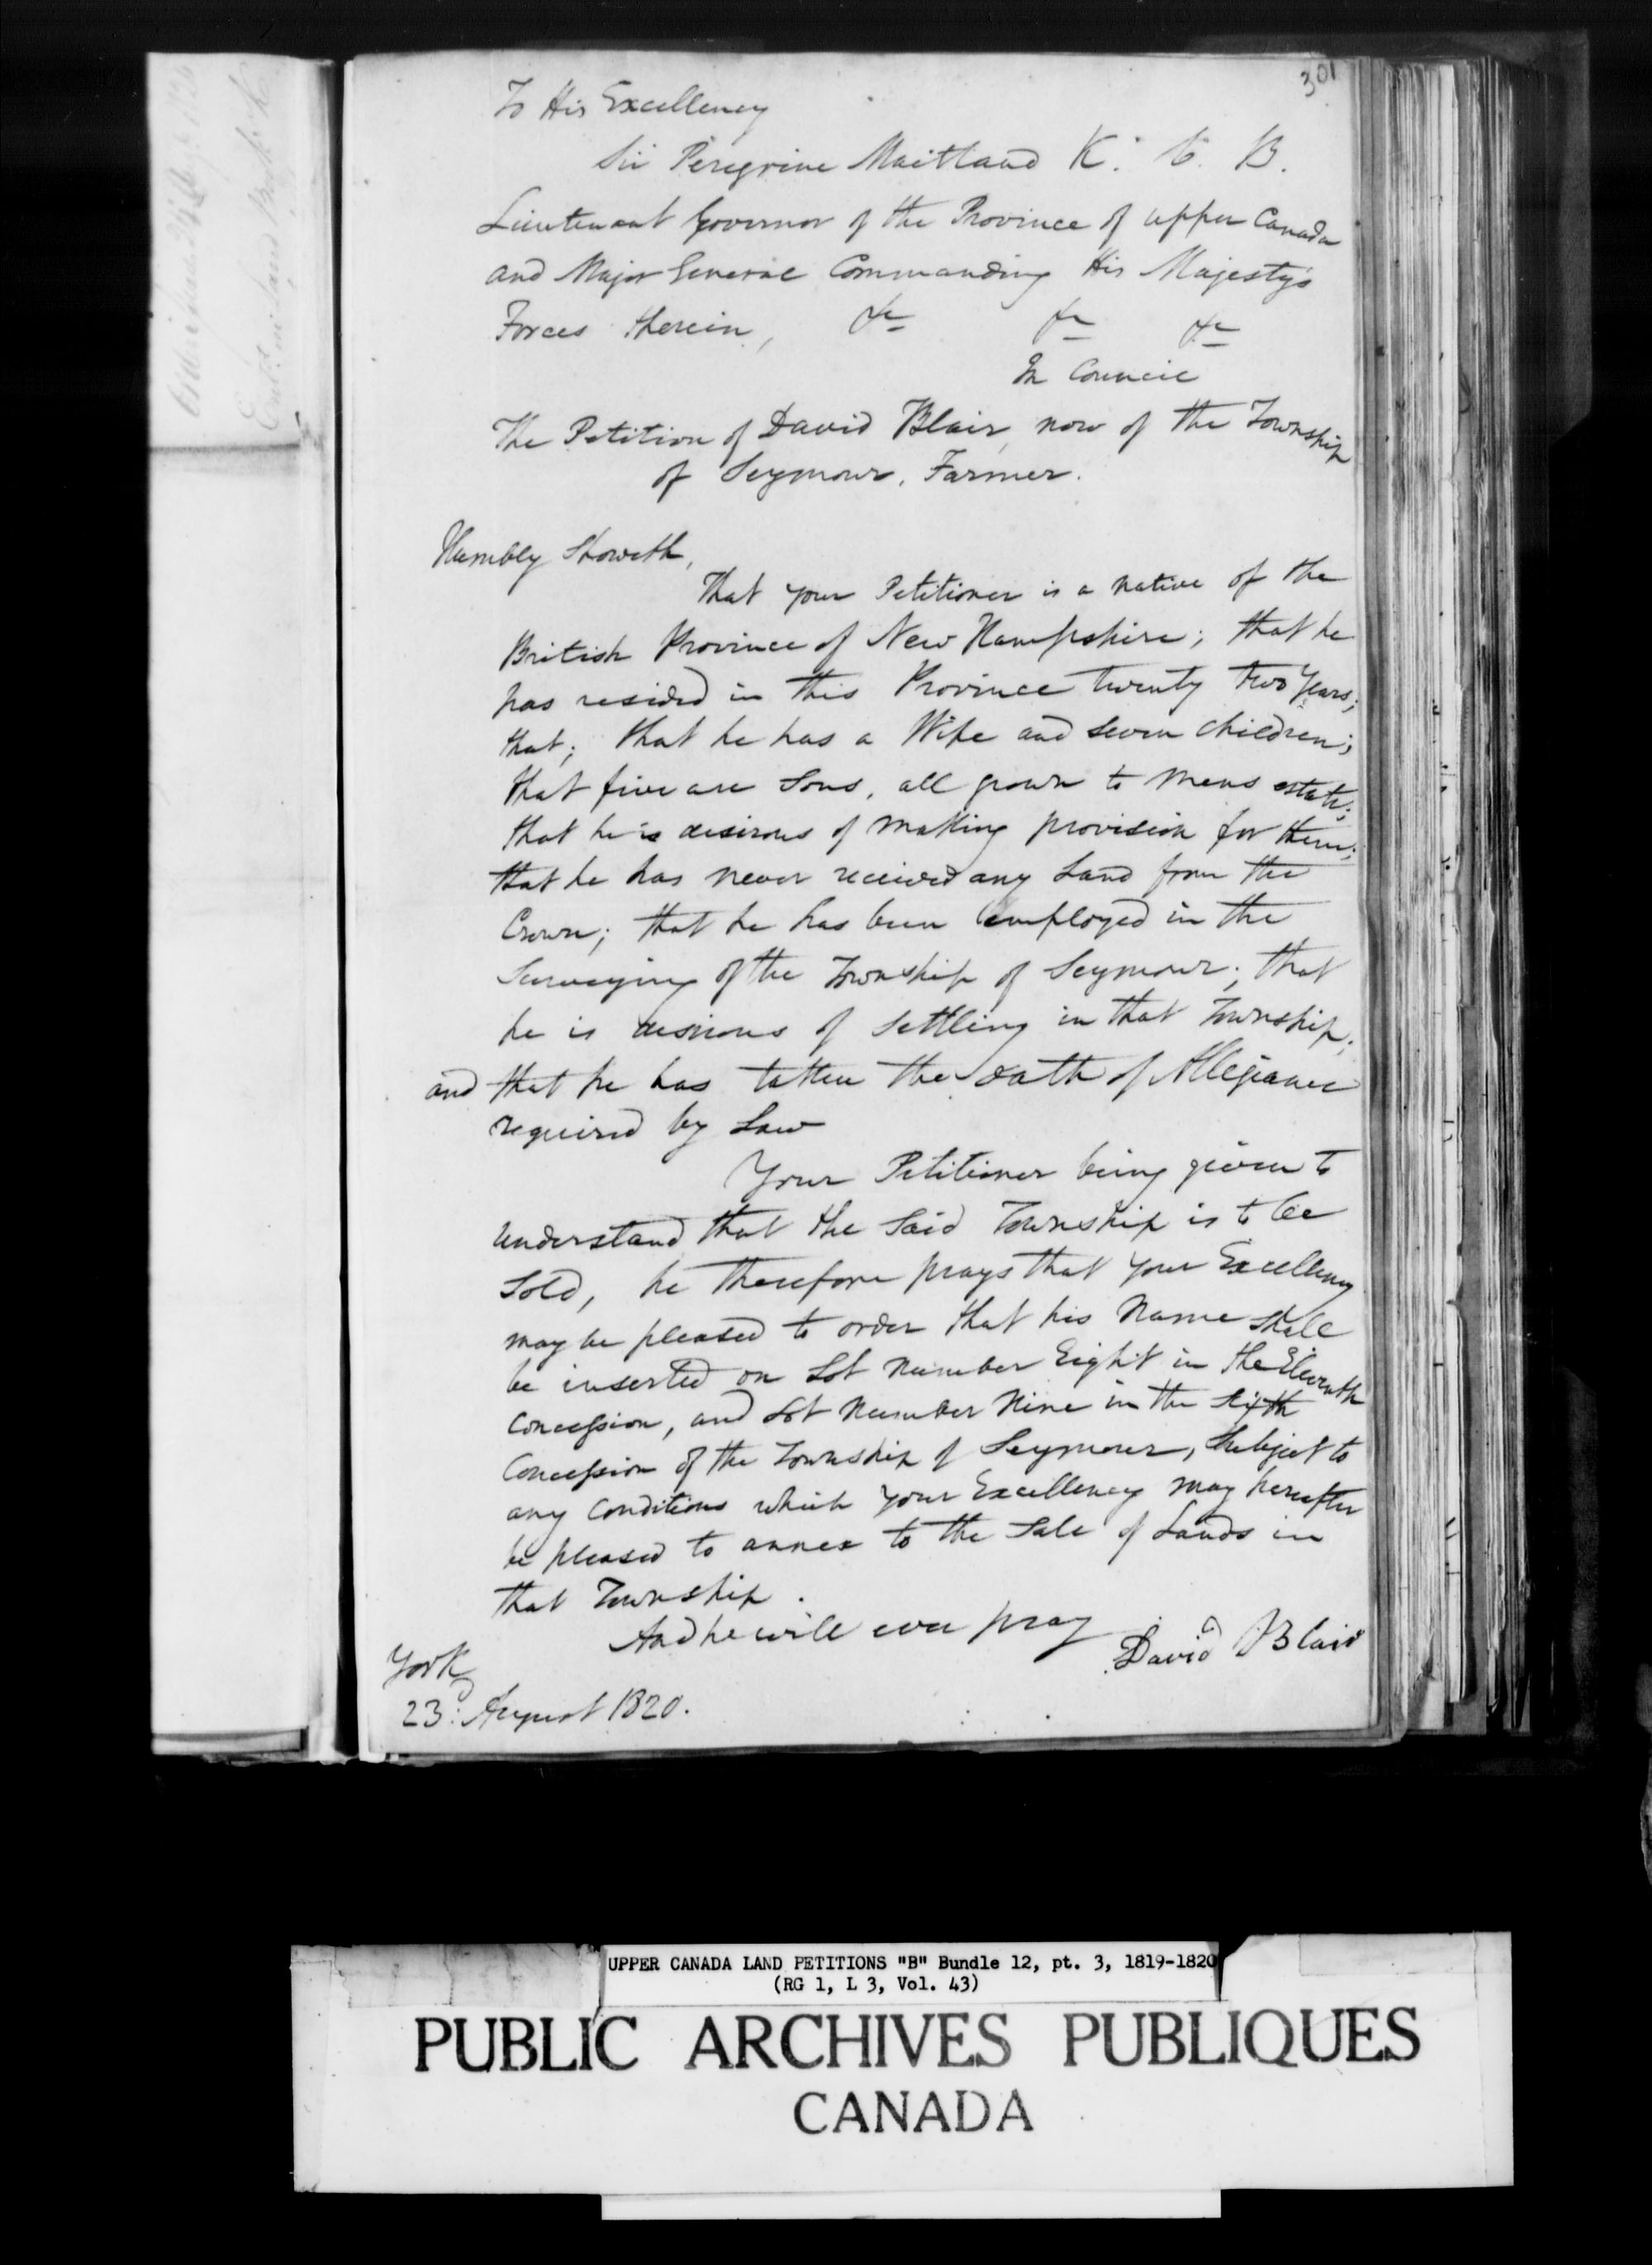 301
To His Excellency
Sir Peregrine Maitland K. C. B.
Lieutenant Governor of the Province of Upper Canada
and Major General Commanding His Majesty's
Forces therein, &c &c &c
In Council
The Petition of David Blair, now of the Township
of Seymour, Farmer.
Humbly Showeth,
That your Petitioner is a native of the
British Province of New Hampshire; that he
has resided in this Province twenty two Years;
that; that he has a Wife and seven children;
that five are Sons, all grown to mens estate;
that he is desirous of making provision for them;
that he has never received any Land from the
Crown; that he has been employed in the
Surveying of the Township of Seymour; that
he is desirous of settling in that Township;
and that he has taken the oath of Allegiance
required by Law
Your Petitioner being given to
understand that the said Township is to be
Sold, he therefore prays that your Excellency
may be pleased to order that his Name shall
be inserted on Lot number Eight in the Eleventh
Concession, and Lot Number Nine in the sixth
Concession of the Township of Seymour, subject to
any Conditions which your Excellency may hereafter
be pleased to annex to the Sale of Lands in
that Township.
And he will ever pray
David Blair
York
23d. August 1820.
UPPER CANADA LAND PETITIONS "B" Bundle 12, pt. 3, 1819-1820
(RG 1, L 3, Vol. 43)
PUBLIC ARCHIVES PUBLIQUES
CANADA